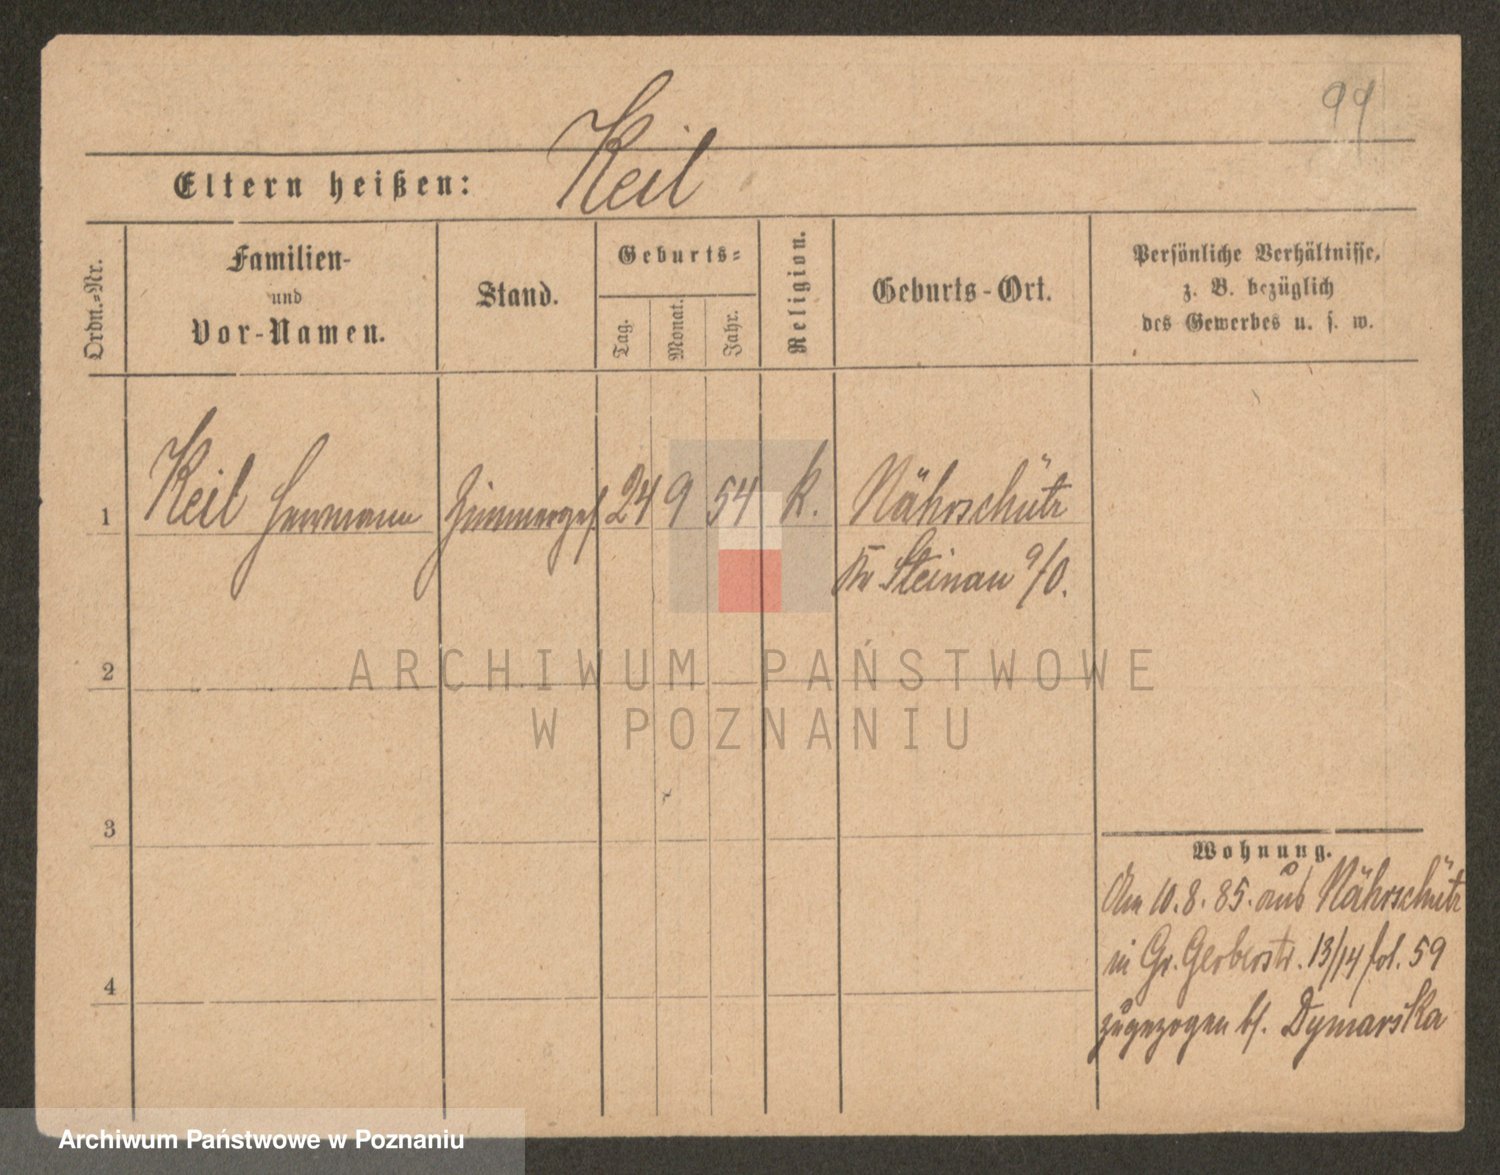 99
Eltern heißen: Keil
Ordn.=Nr.
Familien-
und
Vor-Namen.
Stand.
Geburts=
Tag.
Monat.
Jahr.
Religion.
Geburts-Ort.
Persönliche Verhältnisse,
z. B. bezüglich
des Gewerbes u. s. w.
1 Keil Hermann Zimmerges. 24 9 54 k. Nährschütz
Kr Steinau a/O.
2
3
4
Wohnung.
Am 10.8.85. aus Nährschütz
in Gr. Gerberstr. 13/14 fol. 59
zugezogen bf. Dymarska
ARCHIWUM PAŃSTWOWE
W POZNANIU
Archiwum Państwowe w Poznaniu